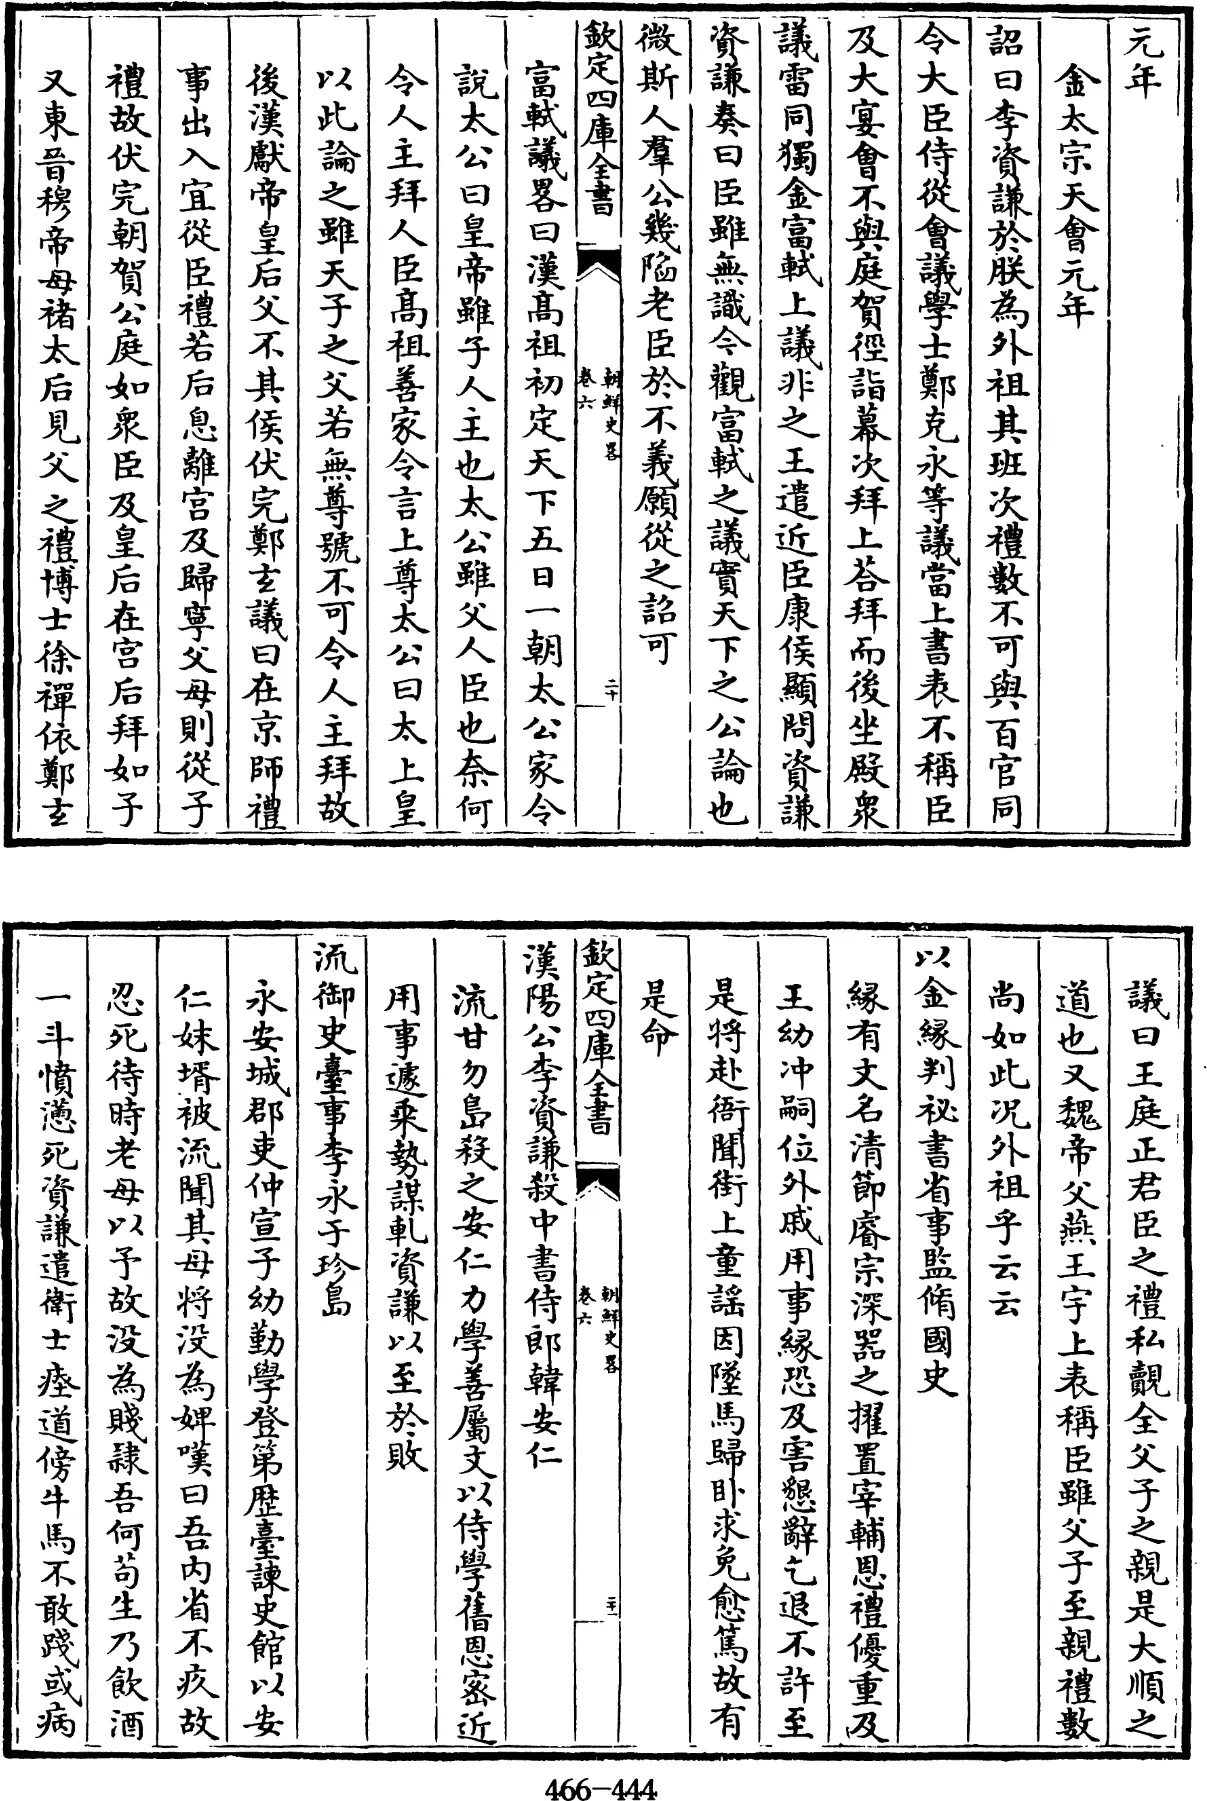 元年
金太宗天會元年
詔曰李資謙於朕為外祖其班次禮數不可與百官同
令大臣侍從會議學士鄭克永等議當上書表不稱臣
及大宴會不與庭賀徑詣幕次拜上荅拜而後坐殿衆
議雷同獨金富軾上議非之王遣近臣康侯顯問資謙
資謙奏曰臣雖無識令觀富軾之議實天下之公論也
微斯人羣公幾陷老臣於不義願從之詔可
欽定四庫全書
朝鮮史畧
卷六
二十
富軾議畧曰漢高祖初定天下五日一朝太公家令
說太公曰皇帝雖子人主也太公雖父人臣也奈何
令人主拜人臣高祖善家令言上尊太公曰太上皇
以此論之雖天子之父若無尊號不可令人主拜故
後漢獻帝皇后父不其侯伏完鄭玄議曰在京師禮
事出入宜從臣禮若后息離宫及歸寧父母則從子
禮故伏完朝賀公庭如衆臣及皇后在宫后拜如子
又東晉穆帝母禇太后見父之禮博士徐禪依鄭玄
議曰王庭正君臣之禮私覿全父子之親是大順之
道也又魏帝父燕王宇上表稱臣雖父子至親禮數
尚如此况外祖乎云云
以金緣判祕書省事監脩國史
緣有文名清節睿宗深器之擢置宰輔恩禮優重及
王幼冲嗣位外戚用事緣恐及害懇辭乞退不許至
是將赴衙聞街上童謡因墜馬歸卧求免愈篤故有
是命
欽定四庫全書
朝鮮史畧
卷六
二十一
漢陽公李資謙殺中書侍郎韓安仁
流甘勿島殺之安仁力學善屬文以侍學舊恩密近
用事遽乘勢謀軋資謙以至於敗
流御史臺事李永于珍島
永安城郡吏仲宣子幼勤學登第歴臺諫史館以安
仁妹壻被流聞其母將没為婢嘆曰吾内省不疚故
忍死待時老母以予故没為賤隷吾何苟生乃飲酒
一斗憤懣死資謙遣衛士瘞道傍牛馬不敢踐或病
466-444